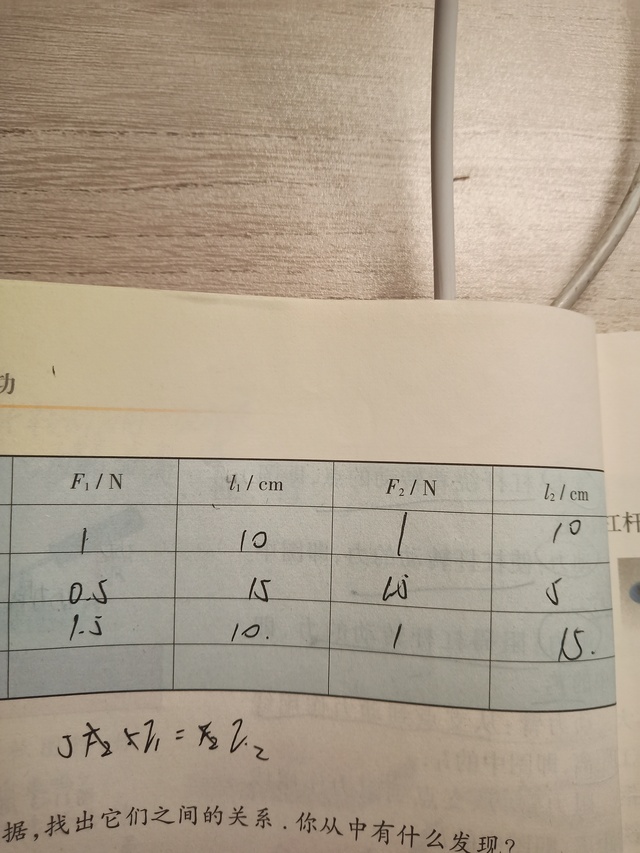 功
F₁ / N l₁ / cm F₂ / N l₂ / cm
1 10 1 10
0.5 15 5
1.5 10. 1 15.
杠杆
据,找出它们之间的关系.你从中有什么发现?